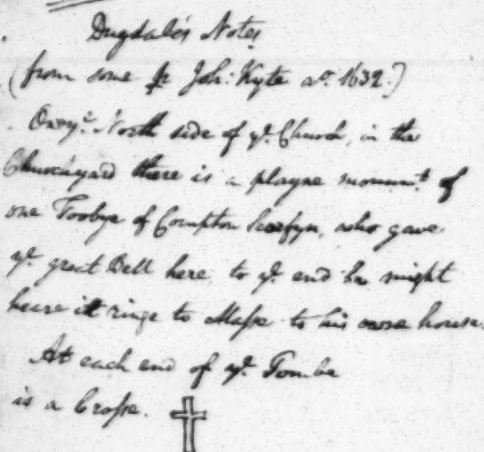 Dugdale's Notes
(from some Joh: Kyte ao. 1632.)
On ye. North side of ye. Church, in the
Churchyard there is a playne monumt. of
one Toobye of Compton Scorfyn, who gave
ye. great Bell here, to ye. end he might
heare itt ringe to Masse to his owne house.
At each end of ye. Tombe
is a Crosse.